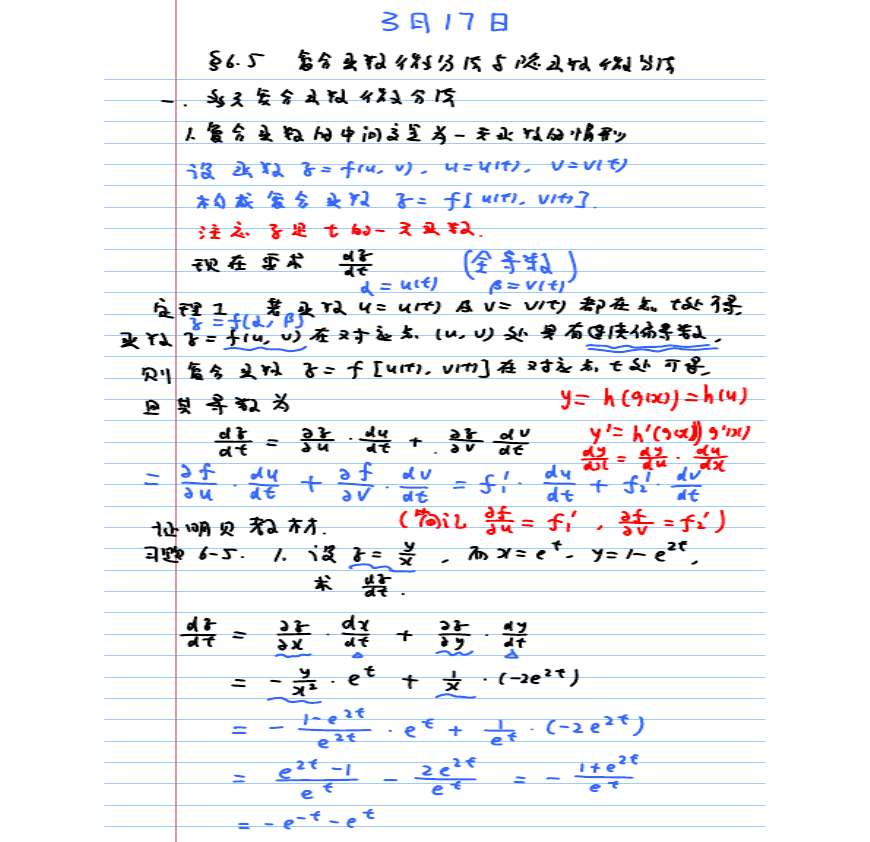 3月17日
§6.5 复合函数微分法与隐函数微分法
一. 多元复合函数微分法
1. 复合函数的中间变量为一元函数的情形
设函数 z = f(u, v), u = u(t), v = v(t)
构成复合函数 z = f[u(t), v(t)].
注意 z 是 t 的一元函数.
现在要求 dz/dt (全导数)
α = u(t) β = v(t)
定理1 若函数 u = u(t) 及 v = v(t) 都在点 t 处可导,
z = f(α, β)
函数 z = f(u, v) 在对应点 (u, v) 处具有连续偏导数,
则复合函数 z = f[u(t), v(t)] 在对应点 t 处可导,
且其导数为 y = h(g(x)) = h(u)
dz/dt = ∂z/∂u · du/dt + ∂z/∂v · dv/dt y' = h'(g(x)) g'(x)
dy/dx = dy/du · du/dx
= ∂f/∂u · du/dt + ∂f/∂v · dv/dt = f₁' · du/dt + f₂' · dv/dt
证明见教材. (简记 ∂f/∂u = f₁', ∂f/∂v = f₂')
习题 6-5. 1. 设 z = y/x, 而 x = e^t, y = 1 - e^{2t},
求 dz/dt.
dz/dt = ∂z/∂x · dx/dt + ∂z/∂y · dy/dt
= - y/x² · e^t + 1/x · (-2e^{2t})
= - (1-e^{2t})/e^{2t} · e^t + 1/e^t · (-2e^{2t})
= (e^{2t} - 1)/e^t - 2e^{2t}/e^t = - (1+e^{2t})/e^t
= -e^{-t} - e^t